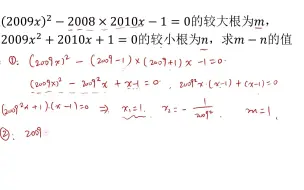 (2009x)² − 2008 × 2010x − 1 = 0的较大根为m,
2009x² + 2010x + 1 = 0的较小根为n, 求m − n的值
①: (2009x)² − (2009−1) × (2009+1) x − 1 = 0.
(2009x)² − 2009²x + x−1 = 0. 2009²x·(x−1) + (x−1) = 0
(2009²x + 1)·(x−1) = 0 ⇒ x₁ = 1. x₂ = − 1/2009² m = 1.
②: 2009